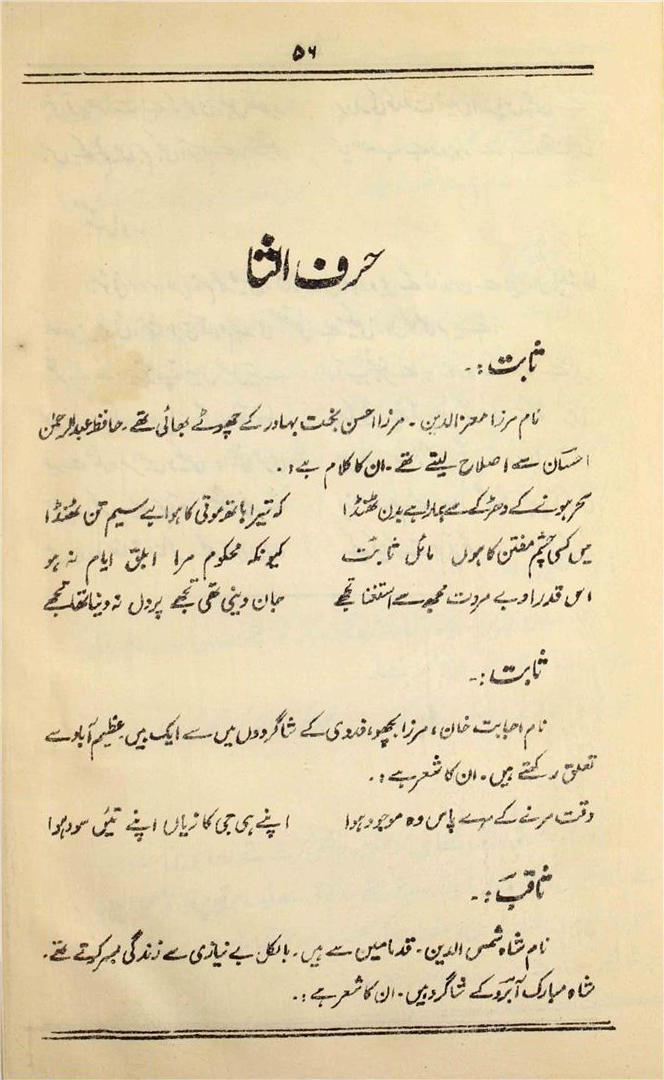 ۵۶
حرف الثا
ثابت :-
نام مرزا معز الدین۔ مرزا احسن بخت بہادر کے چھوٹے بھائی تھے۔ حافظ عبدالرحمٰن
احسان سے اصلاح لیتے تھے۔ ان کا کلام ہے :۔
سحر ہونے کے دھڑکے سے ہمارا ہے بدن ٹھنڈا کہ تیرا ہاتھ موتی کا ہوا ہے سیم تن ٹھنڈا
میں کسی چشم مفتن کا ہوں مائل ثابتؔ کیونکہ محکوم مرا ابلق ایام نہ ہو
اس قدر او بے مروت مجھ سے استغنا تجھے جان دینی تھی تجھے پر دل نہ دینا تھا تجھے
ثابت :-
نام اجابت خان، مرزا بھچو، فدوی کے شاگردوں میں سے ایک ہیں۔ عظیم آباد سے
تعلق رکھتے ہیں۔ ان کا شعر ہے :۔
وقت مرنے کے مرے پاس وہ موجود ہوا اپنے ہی جی کا زیاں اپنے تئیں سود ہوا
ثاقبؔ :-
نام شاہ شمس الدین۔ قدما میں سے ہیں۔ بالکل بے نیازی سے زندگی بسر کرتے تھے۔
شاہ مبارک آبرو کے شاگرد ہیں۔ ان کا شعر ہے :۔